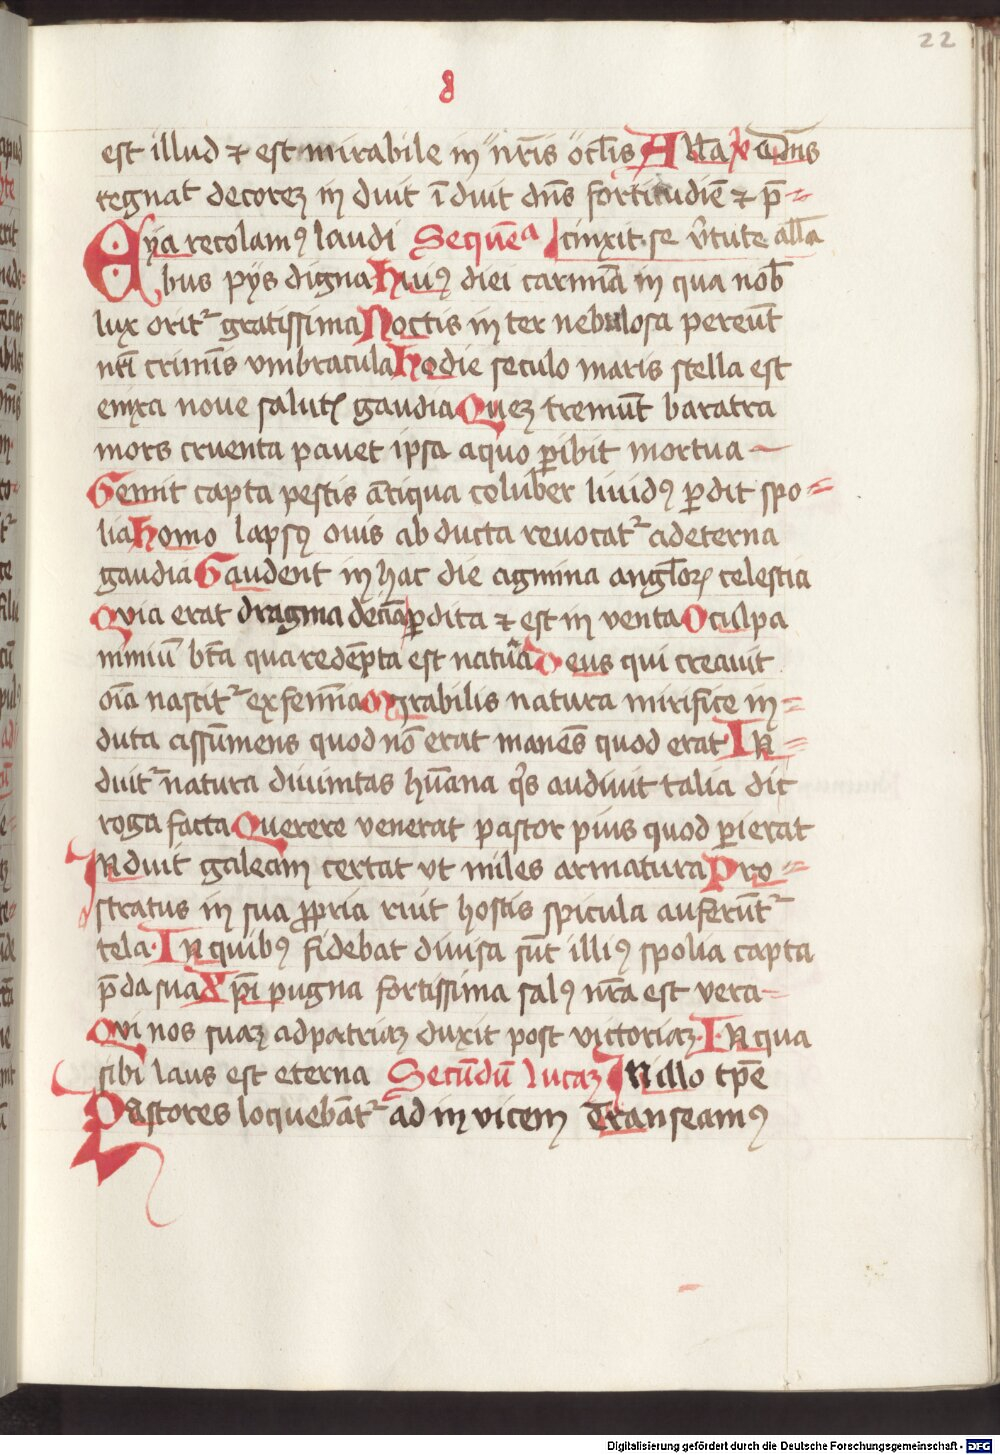 22
8
est illud ⁊ est mirabile in nr̄is ocl̄is All̄a ꝟ dn̄s
regnat decoreꝫ induit īduit dn̄s fortitudiē ⁊ p̄
Eya recolamꝰ laudi Sequēᵃ cinxit se v̓tute all̄a
bus pijs digna Huiꝰ diei carmīa in qua nob̄
lux oritᷣ gratissima Noctis in ter nebulosa pereūt
nr̄i crimīs vmbracula Hodie seculo maris stella est
enixa noue salutꝭ gaudia Queꝫ tremūt baratra
mors cruenta pauet ipsa aquo ꝑibit mortua
Gemit capta pestis ātiqua coluber liuidꝰ ꝑdit spo
lia Homo lapsꝰ ouis ab ducta reuocatᷣ adeterna
gaudia Gaudent in hac die agmina angl̄oꝝ celestia
Quia erat dragma decīa ꝑdita ⁊ est in uenta O culpa
nimiū bt̄a qua redēpta est natura Deus qui creauit
oīa nascitᷣ ex femīa Mirabilis natura mirifice in
duta assūmens quod nō erat manēs quod erat In
duitᷣ natura diuinitas hūana qͥs audiuit talia dic
rogo facta Querere venerat pastor pius quod ꝑierat
Induit galeam certat vt miles armatura Pro
stratus in sua ꝓpria ruit hostis spicula auferūtᷣ
tela In quibꝰ fidebat diuisa sūt illiꝰ spolia capta
p̄da sua Xp̄i pugna fortissima salꝰ nr̄a est vera
Qui nos suaꝫ adpatriaꝫ duxit post victoriaꝫ In qua
sibi laus est eterna Secūdū lucaꝫ In illo tp̄e
Pastores loquebātᷣ ad in vicem Transeamꝰ
Digitalisierung gefördert durch die Deutsche Forschungsgemeinschaft - DFG